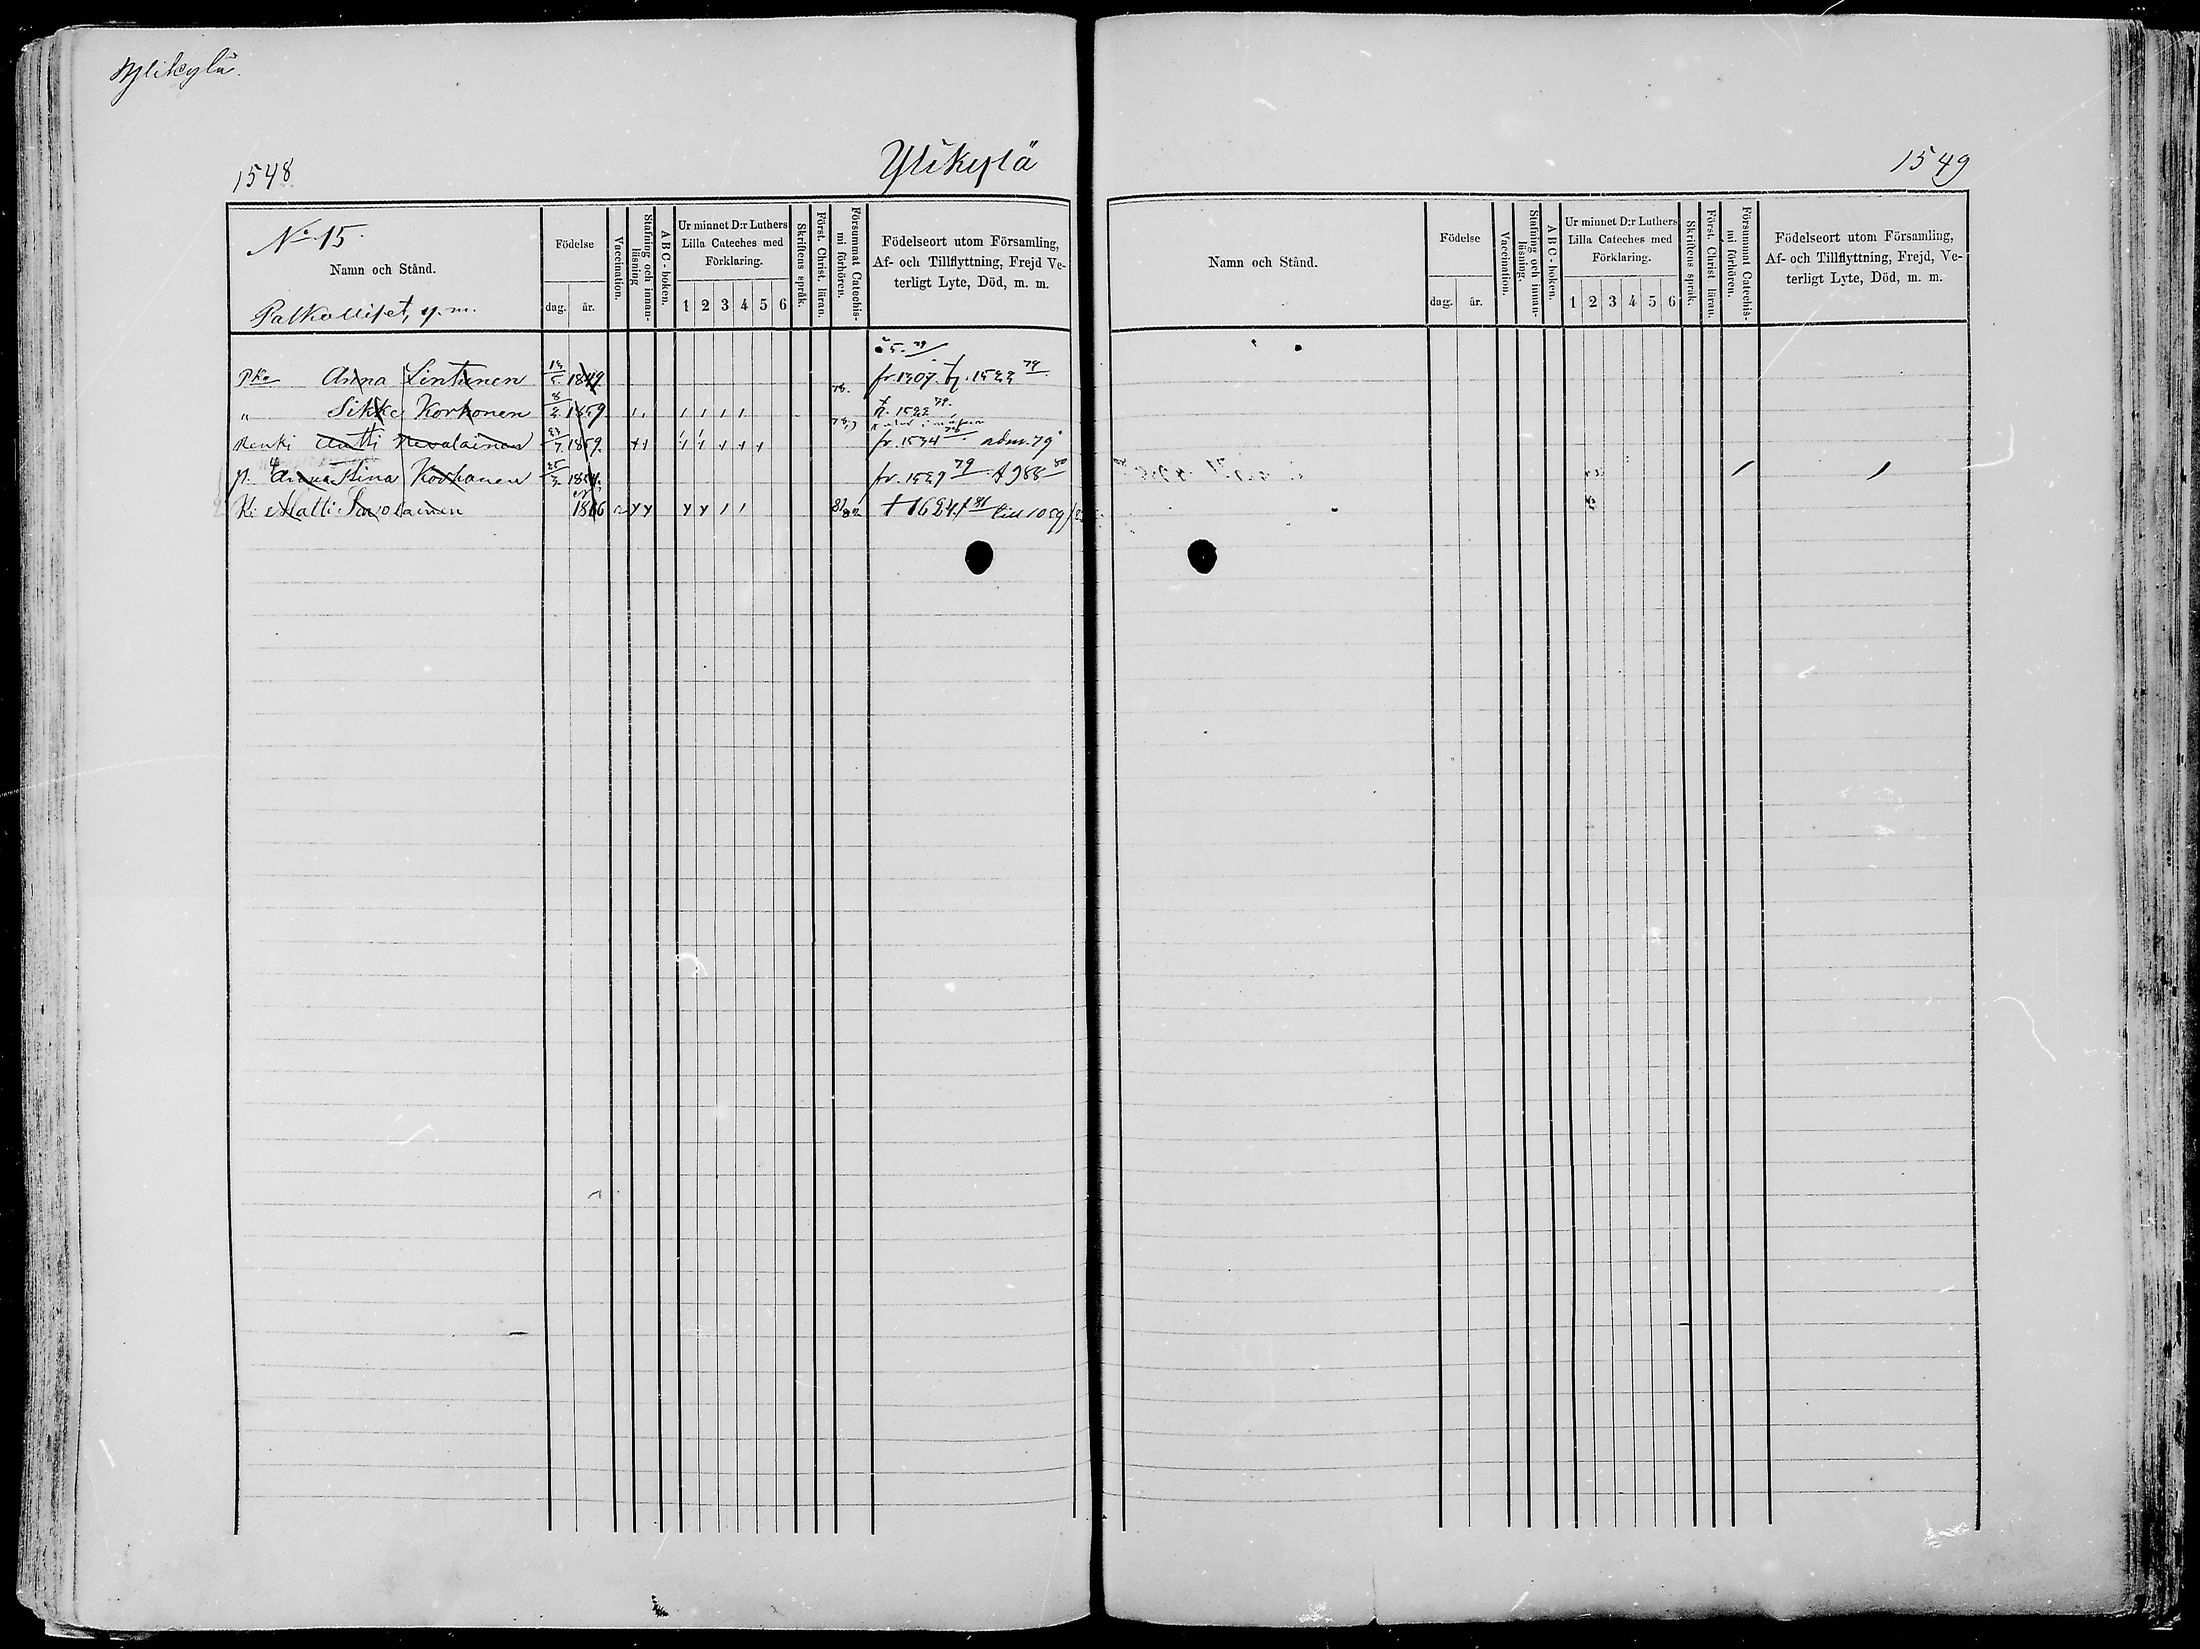 Ylikylä.
1548
Ylikylä
No 15.
Namn och Stånd.
Palkolliset, y. m.
Födelse
dag. år.
Vaccination.
Stafning och innanläsning
ABC-boken.
Ur minnet D:r Luthers Lilla Cateches med Förklaring.
1 2 3 4 5 6
Skriftens språk.
Först. Christ. läran.
Försummat Catechismi förhören.
Födelseort utom Församling,
Af- och Tillflyttning, Frejd Ve-
terligt Lyte, Död, m. m.
Anna Lintunen 1849 fr. 1507. 79
" Korhonen 8/2 1859 79.
Renki Antti Nevalainen 1859. fr. 1534 adm. 79
p. Anna Stina Korhonen 25/2 fr. 1529 79 988 80
Ki Matti Savolainen 1866 1624 81 till 1059
1549
Namn och Stånd.
Födelse
dag. år.
Vaccination.
Stafning och innanläsning.
ABC-boken.
Ur minnet D:r Luthers Lilla Cateches med Förklaring.
1 2 3 4 5 6
Skriftens språk.
Först. Christ. läran.
Försummat Catechismi förhören.
Födelseort utom Församling,
Af- och Tillflyttning, Frejd, Ve-
terligt Lyte, Död, m. m.